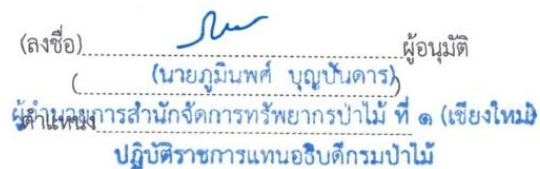 (ลงชื่อ)........................................ผู้อนุมัติ
(นายภูมินพศ บุญบันดาร)
ตำแหน่ง ผู้อำนวยการสำนักจัดการทรัพยากรป่าไม้ ที่ ๑ (เชียงใหม่)
ปฏิบัติราชการแทนอธิบดีกรมป่าไม้